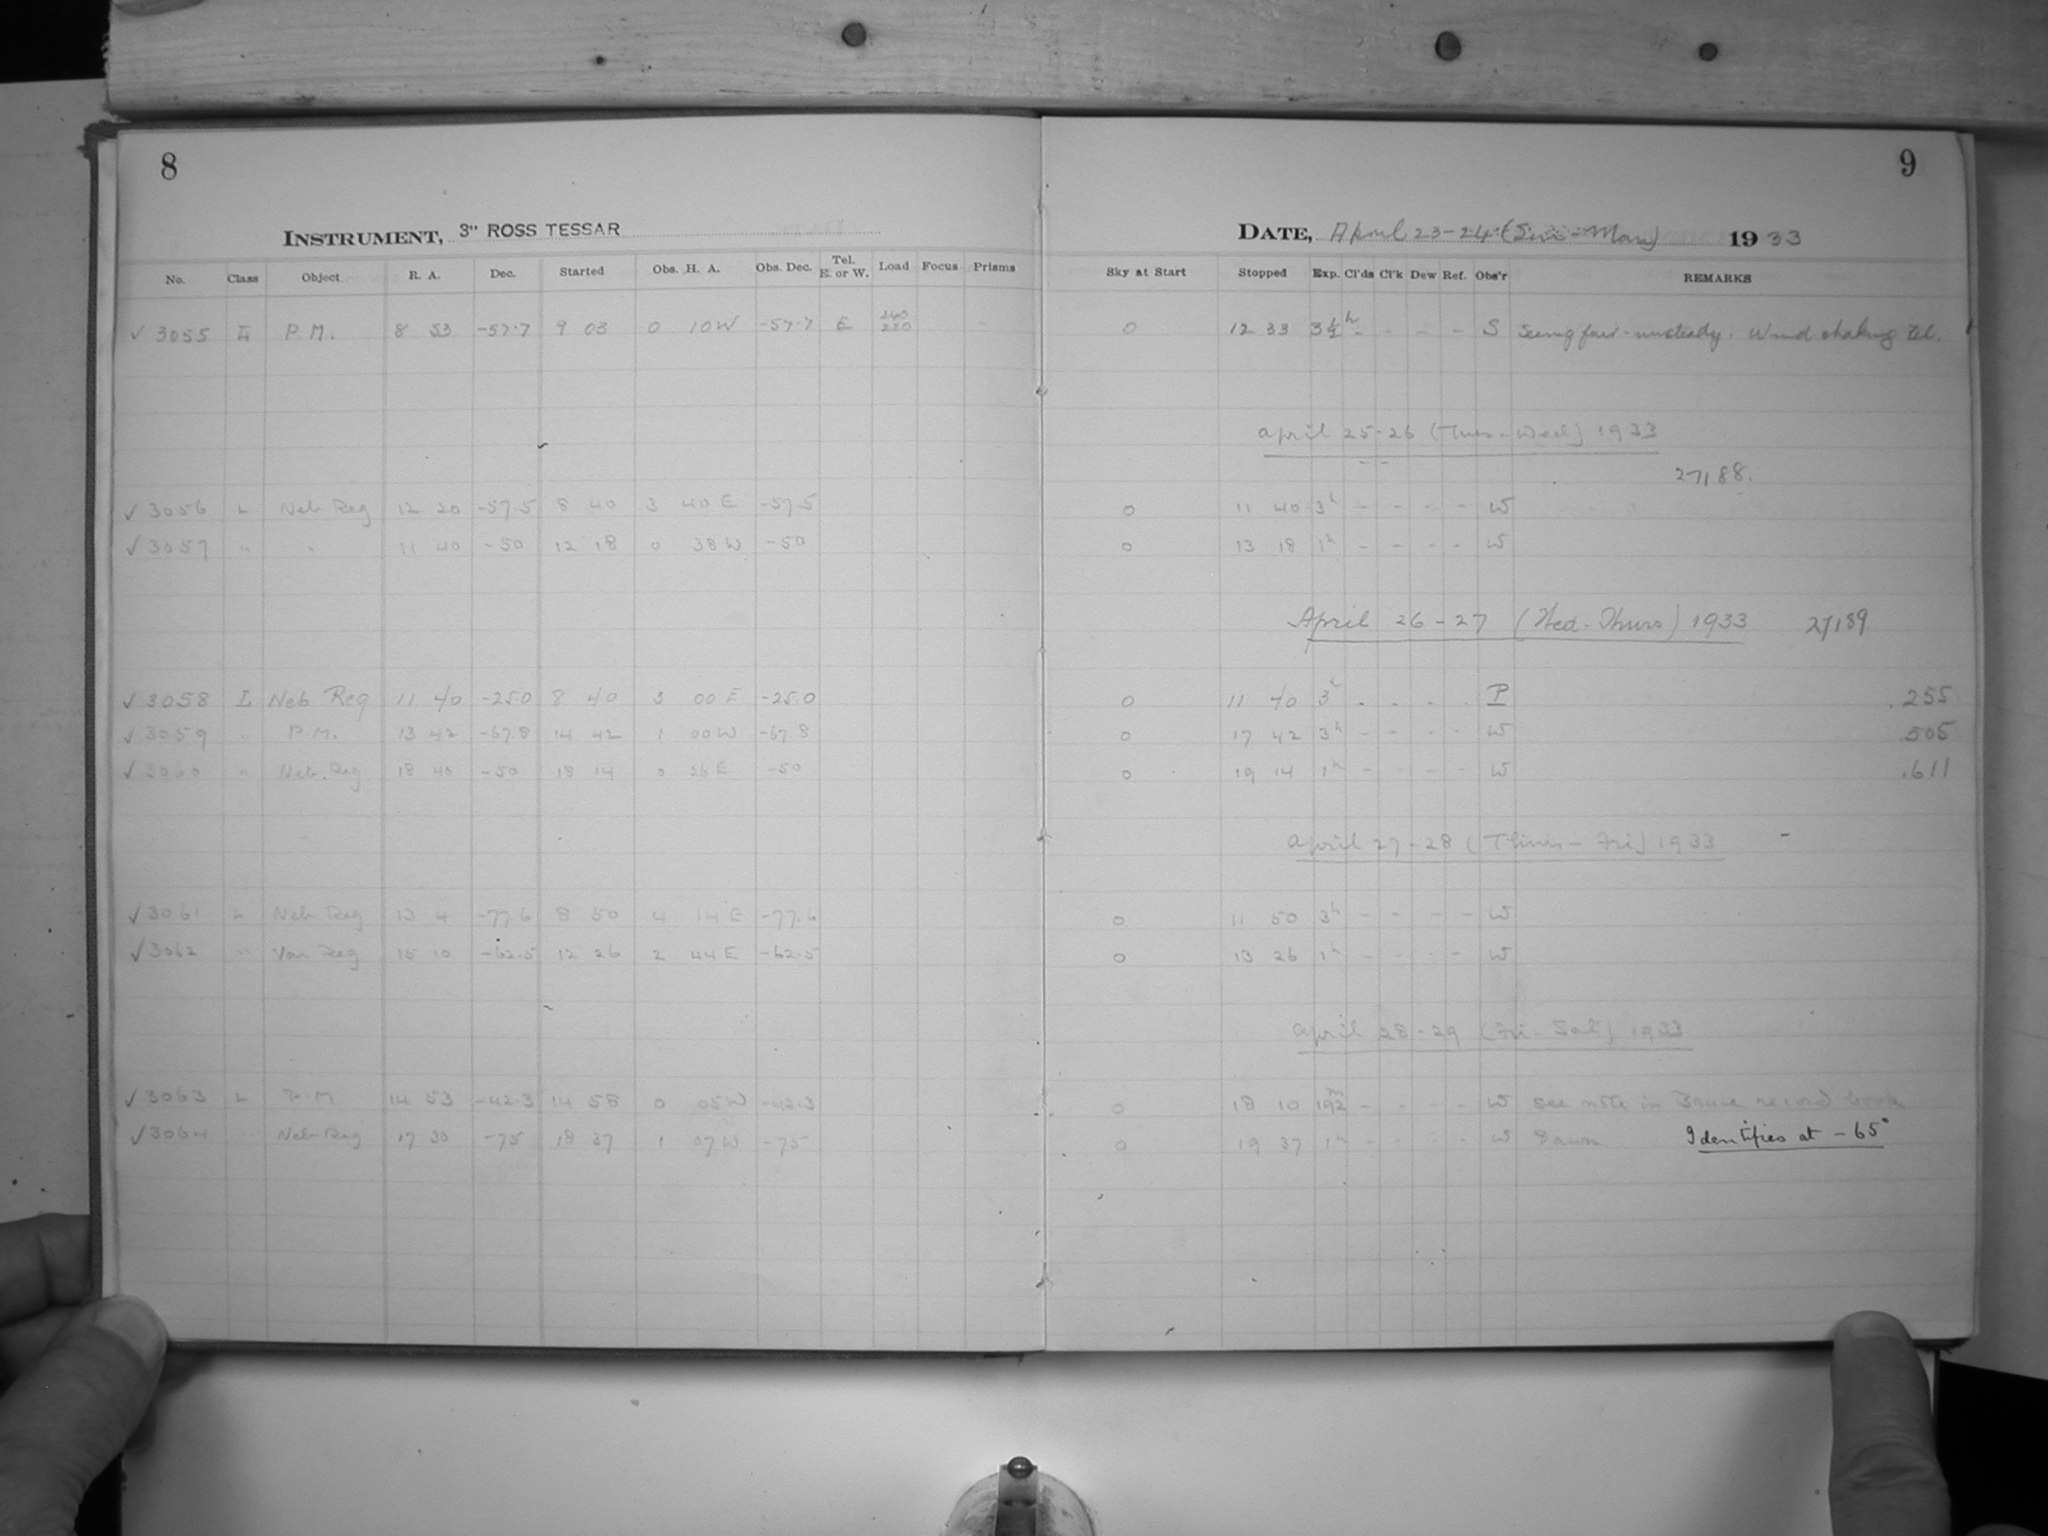 8
INSTRUMENT, 3" ROSS TESSAR
No. Class Object R. A. Dec. Started Obs. H. A. Obs. Dec. Tel. E. or W. Load Focus Prisms
✓ 3055 L P.M. 8 53 -57.7 9 03 0 10W -57.7 E
✓ 3056 L Neb Reg 12 20 -57.5 8 40 3 40 E -57.5
✓ 3057 " " 11 40 -50 12 18 0 38W -50
✓ 3058 L Neb Reg 11 40 -25.0 8 40 3 00 E -25.0
✓ 3059 " P.M. 13 42 -67.8 14 42 1 00W -67.8
✓ 3060 " Neb. Reg 18 40 -50 18 14 0 26 E -50
✓ 3061 L Neb Reg 13 4 -77.6 8 50 4 14 E -77.6
✓ 3062 " Var Reg 15 10 -62.5 12 26 2 44 E -62.5
✓ 3063 L P.M 14 53 -42.3 14 58 0 05W -42.3
✓ 3064 " Neb Reg 17 30 -75 18 37 1 07W -75
9
DATE, April 23-24 (Sun-Mon) 1933
Sky at Start Stopped Exp. Cl'ds Cl'k Dew Ref. Obs'r REMARKS
0 12 33 3½h - - - - S Seeing fair - unsteady. Wind shaking tel.
April 25-26 (Tues-Wed) 1933
27188.
0 11 40 3h - - - - W
0 13 18 1h - - - - W
April 26-27 (Wed-Thurs) 1933 27189
0 11 40 3h - - - - P .255
0 17 42 3h - - - - W .505
0 19 14 1h - - - - W .611
April 27-28 (Thurs-Fri) 1933
0 11 50 3h - - - - W
0 13 26 1h - - - - W
April 28-29 (Fri-Sat) 1933
0 18 10 192m - - - - W See note in Bruce record book
0 19 37 1h - - - - W Dawn Identifies at -65°